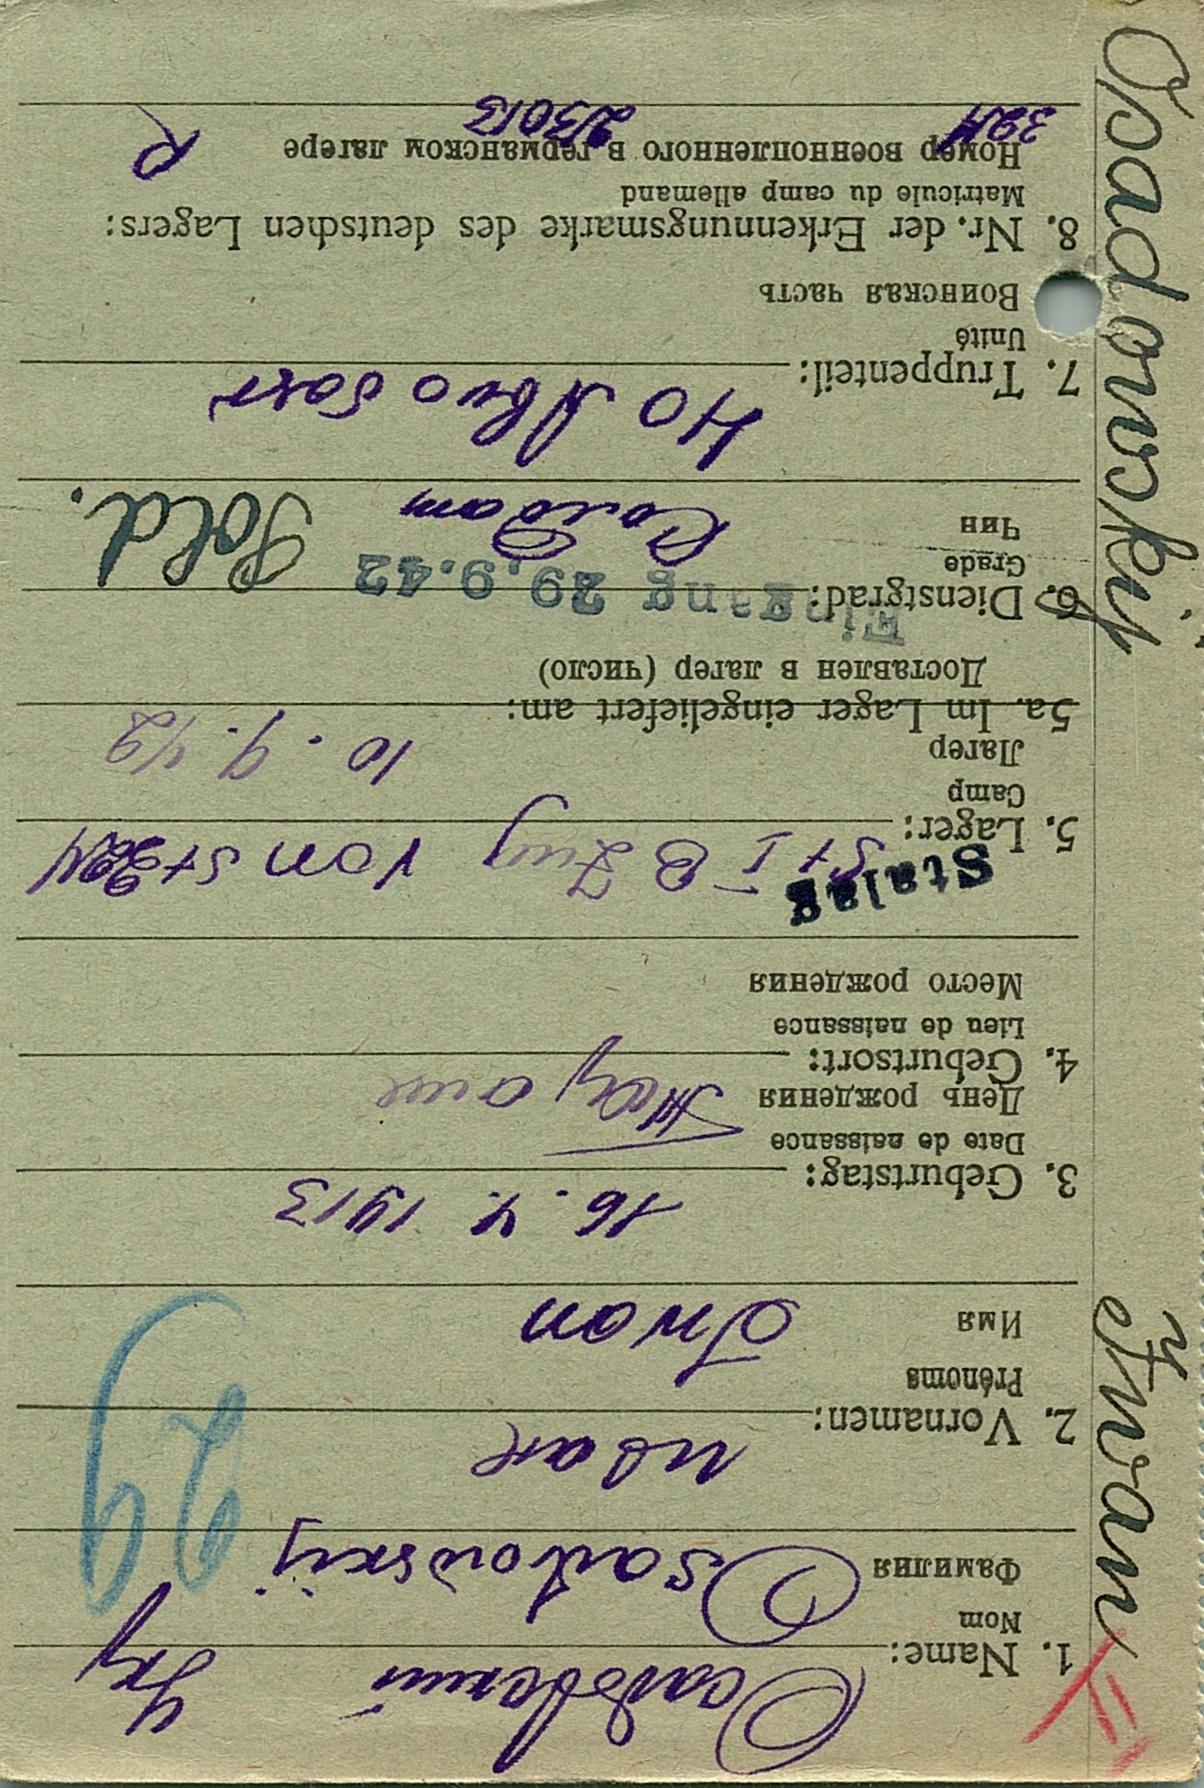 Осадовский Укр
1. Name:
Nom
Фамилия
Osadowskij
29
иван
2. Vornamen:
Prénoms
Имя
Iwan
16. 4. 1913
3. Geburtstag:
Date de naissance
День рождения
4. Geburtsort:
Lieu de naissance
Место рождения
Stalag
St I B Zug von St
5. Lager:
Camp
Лагер
10. 9. 42
5a. Im Lager eingeliefert am:
Доставлен в лагер (число)
Eingang 29.9.42
6. Dienstgrad:
Grade
Чин
Солдат Sold.
40
7. Truppenteil:
Unité
Воинская часть
8. Nr. der Erkennungsmarke des deutschen Lagers:
Matricule du camp allemand
Номер военнопленного в германском лагере
R
Iwan
Osadowskij